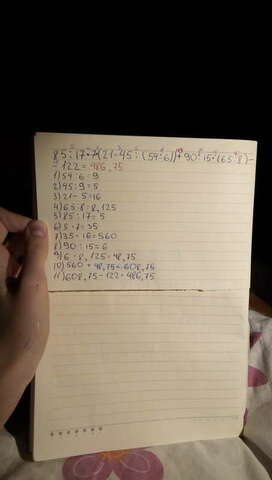 85÷17·7(21-45÷(54÷6))+90÷15·(65÷8)-
-122=486,75
1)54÷6=9
2)45÷9=5
3)21-5=16
4)65÷8=8,125
5)85÷17=5
6)5·7=35
7)35·16=560
8)90÷15=6
9)6·8,125=48,75
10)560+48,75=608,75
11)608,75-122=486,75